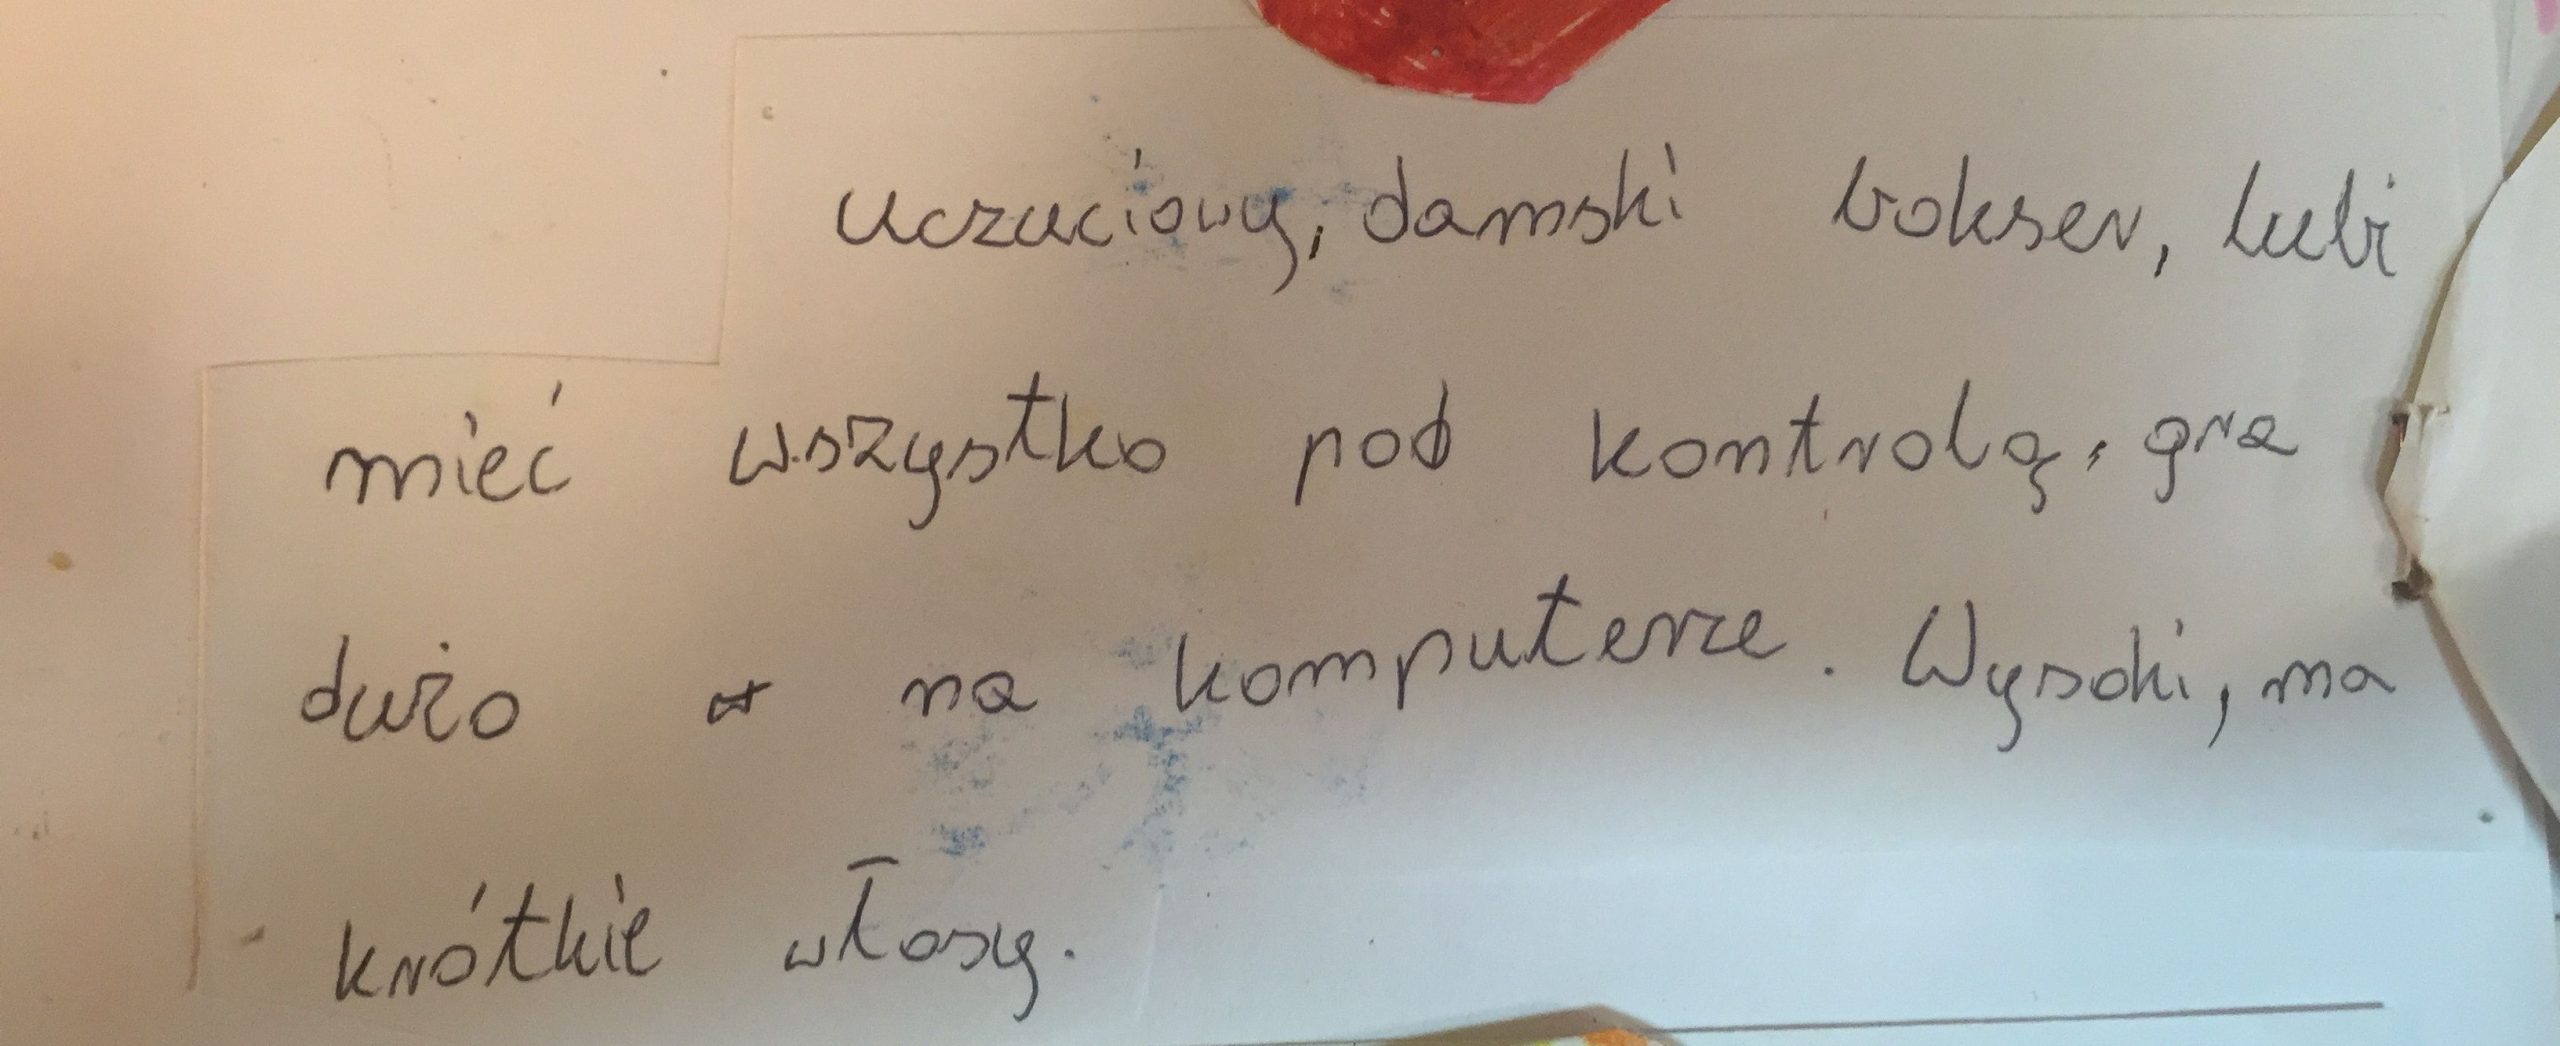 uczuciowy, damski bokser, lubi
mieć wszystko pod kontrolą, gra
dużo na komputerze. Wysoki, ma
krótkie włosy.